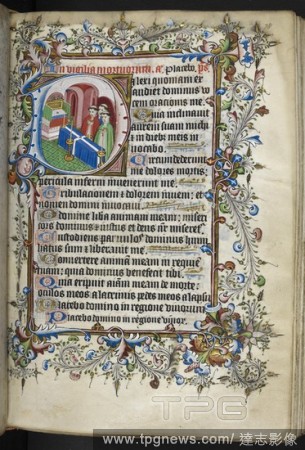 In vigilia mortuorum. a. Placebo. ps.
Dilexi quoniam ex
audiet dominus vo
cem orationis me
Quia inclinavit
aurem suam michi
et in diebus meis in
vocabo.
Circumdederunt
me dolores mortis:
pericula inferni invenerunt me.
Tribulacionem et dolorem inveni: et
nomen domini invocavi.
O domine libera animam meam: miseri
cors dominus et iustus et deus nr miseret.
Custodiens parvulos dominus humi
liatus sum et liberavit me.
Convertere anima meam in requiem
tuam: quia dominus benefecit tibi.
Quia eripuit aiam meam de morte:
oculos meos a lacrimis pedes meos a lapsu
Placebo domino in regione vivorum
Placebo domino in regione vivor.
TPG
www.tpgnews.com/達志影像